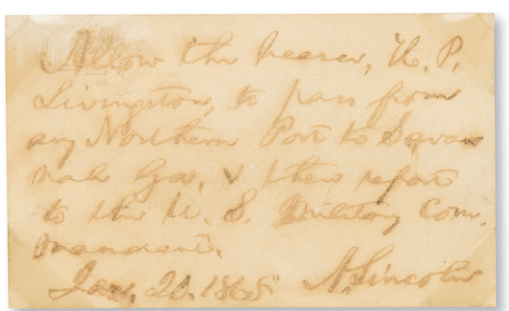 Allow the bearer, H. P.
Livingston, to pass from
any Northern Port to Savan
nah Ga. & then report
to the U. S. Military Com.
mandant.
Jan. 20. 1865 A. Lincoln